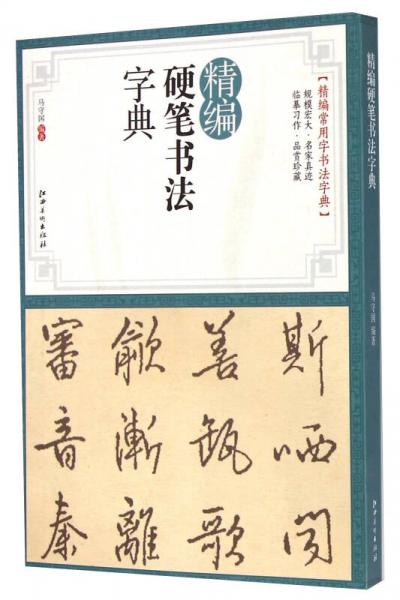 精编
硬笔书法
字典
马守国 编著
江西美术出版社
【精编常用字书法字典】
规模宏大·名家真迹
临摹习作·品赏珍藏
斯哂闻
善甄歌
歙渐離
審音秦
精编硬笔书法字典
马守国 编著
江西美术出版社